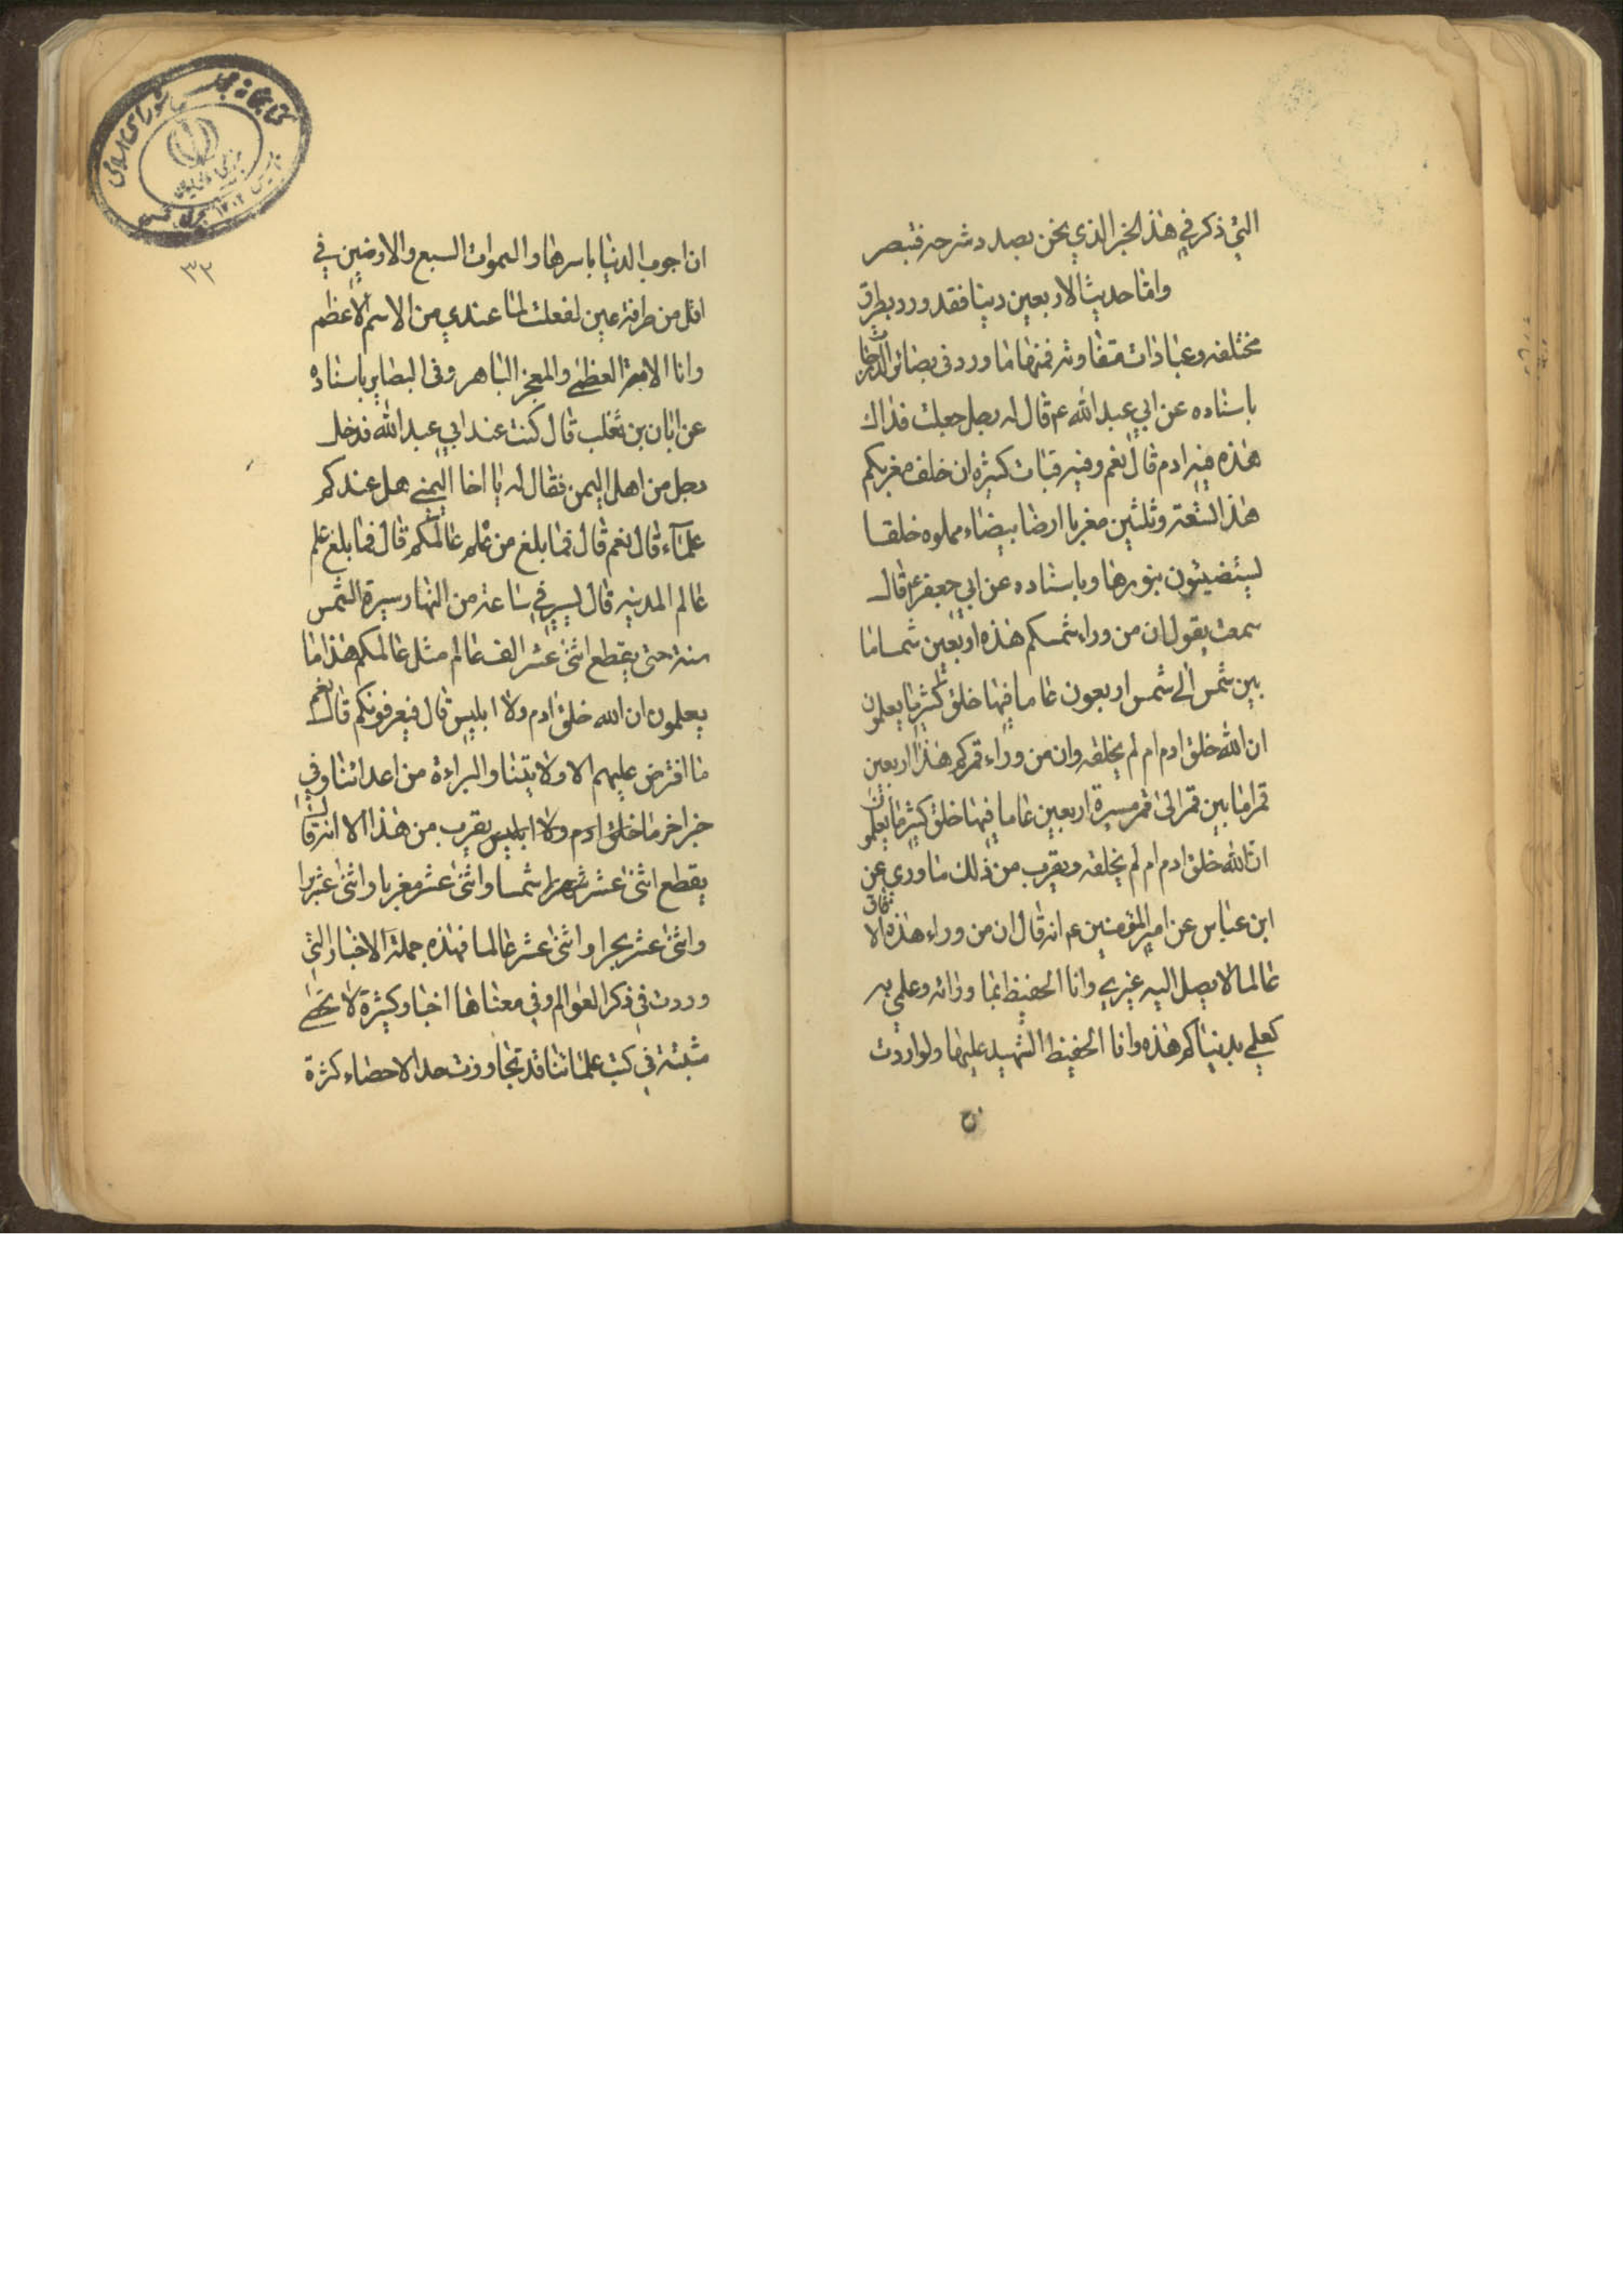 التي ذكر في هذا الخبر الذي نحن بصدد شرحه فتبصر
واما حديث الاربعين دينا فقد ورد بطرق
مختلفه وعبادات متفاوته فمنها ما ورد في بصائر الدرجات
باسناده عن ابي عبد الله ع قال له رجل جعلت فداك
هذه فيه ادم قال نعم وفيه قبات كثيره ان خلف مغربكم
هذا تسعة وثلثين مغربا ارضا بيضاء مملوه خلقا
يستضيئون بنورها وباسناده عن ابي جعفر ع قال
سمعت يقول ان من وراء شمسكم هذه اربعين شمسا ما
بين شمس الي شمس اربعون عاما فيها خلق كثير ما يعلمون
ان الله خلق ادم ام لم يخلقه وان من وراء قمركم هذا اربعين
قمرا ما بين قمر الى قمر مسيرة اربعين عاما فيها خلق كثير ما يعلمون
ان الله خلق ادم ام لم يخلقه ويقرب من ذلك ما وري عن
ابن عباس عن امير المؤمنين ع انه قال ان من وراء هذه الافاق
عالما لا يصل اليه غيري وانا الحفيظ بما ورائه وعلمي به
كعلمي بدنياكم هذه وانا الحفيظ الشهيد عليها ولو اردت
ان اجوب الدنيا باسرها والسموات السبع والارضين في
اقل من طرفة عين لفعلت لما عندي من الاسم الاعظم
وانا الاية العظمى والمعجز الباهر وفى البصاير باسناده
عن ابان بن تغلب قال كنت عند ابي عبد الله فدخل
رجل من اهل اليمن فقال له يا اخا اليمني هل عندكم
علماء قال نعم قال فما بلغ من علم عالمكم قال فما بلغ علم
عالم المدينه قال يسير في ساعة من النهار سيرة الشمس
سنة حتى يقطع اثنى عشر الف عالم مثل عالمكم هذا ما
يعلمون ان الله خلق ادم ولا ابليس قال فيعرفونكم قال نعم
ما افترض عليهم الا ولايتنا والبراءة من اعدائنا وفي
خبر اخر ما خلق ادم ولا ابليس يقرب من هذا الا انه قال
يقطع اثنى عشر شمسا واثنى عشر مغربا واثنى عشر برا
واثنى عشر بحرا واثنى عشر عالما فهذه جملة الاخبار التي
وردت في ذكر العوالم وفي معناها اخبار كثيرة لا تحصى
مثبتة في كتب علمائنا قد تجاوزت حد الاحصاء كثرة
٣٢